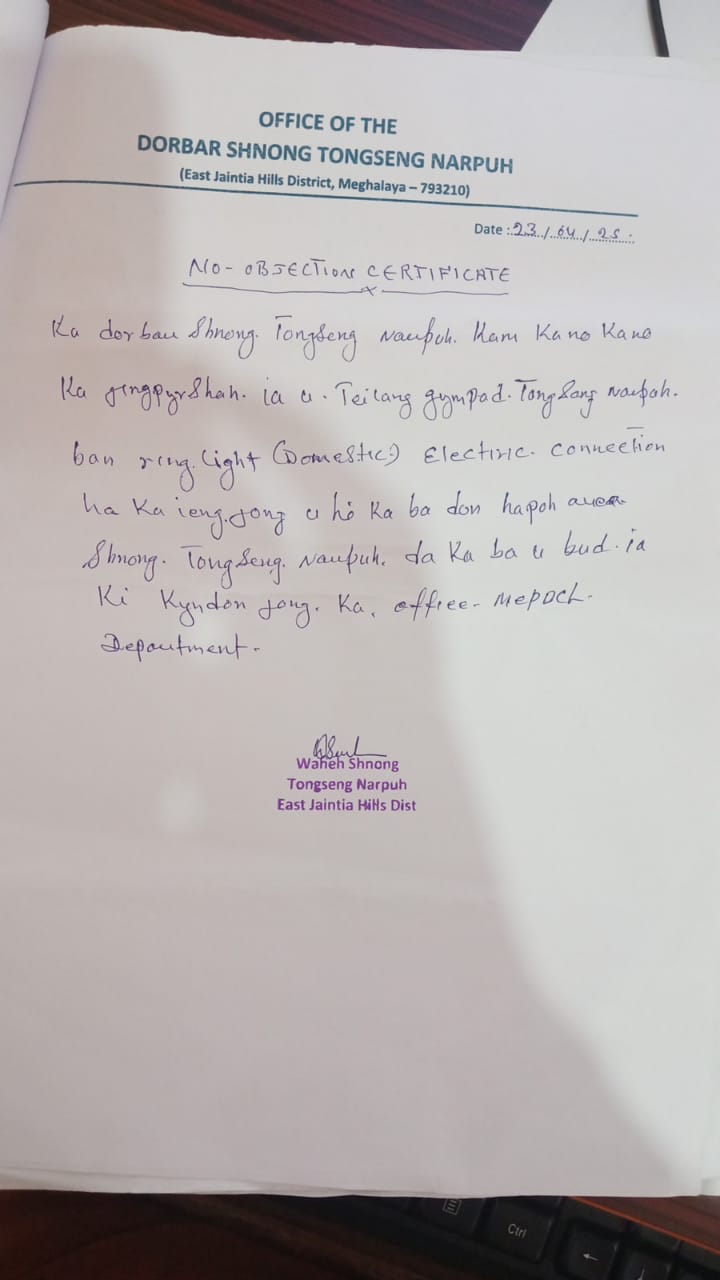 OFFICE OF THE
DORBAR SHNONG TONGSENG NARPUH
(East Jaintia Hills District, Meghalaya – 793210)
Date :.23./.04./.25.
NO-OBJECTION CERTIFICATE
Ka dorbar Shnong. TongSeng Narpuh. Kam Kano Kano
Ka jingpyrShah. ia u. Teilang gympad. TongSang Narpuh.
ban ring. light (Domestic) Electric. connection
ha Ka ieng. jong u hi Ka ba don hapoh area
Shnong. TongSeng. Narpuh. da Ka ba u bud. ia
Ki Kyndon jong. Ka. office-
Department.
Waheh Shnong
Tongseng Narpuh
East Jaintia Hills Dist
Ctrl